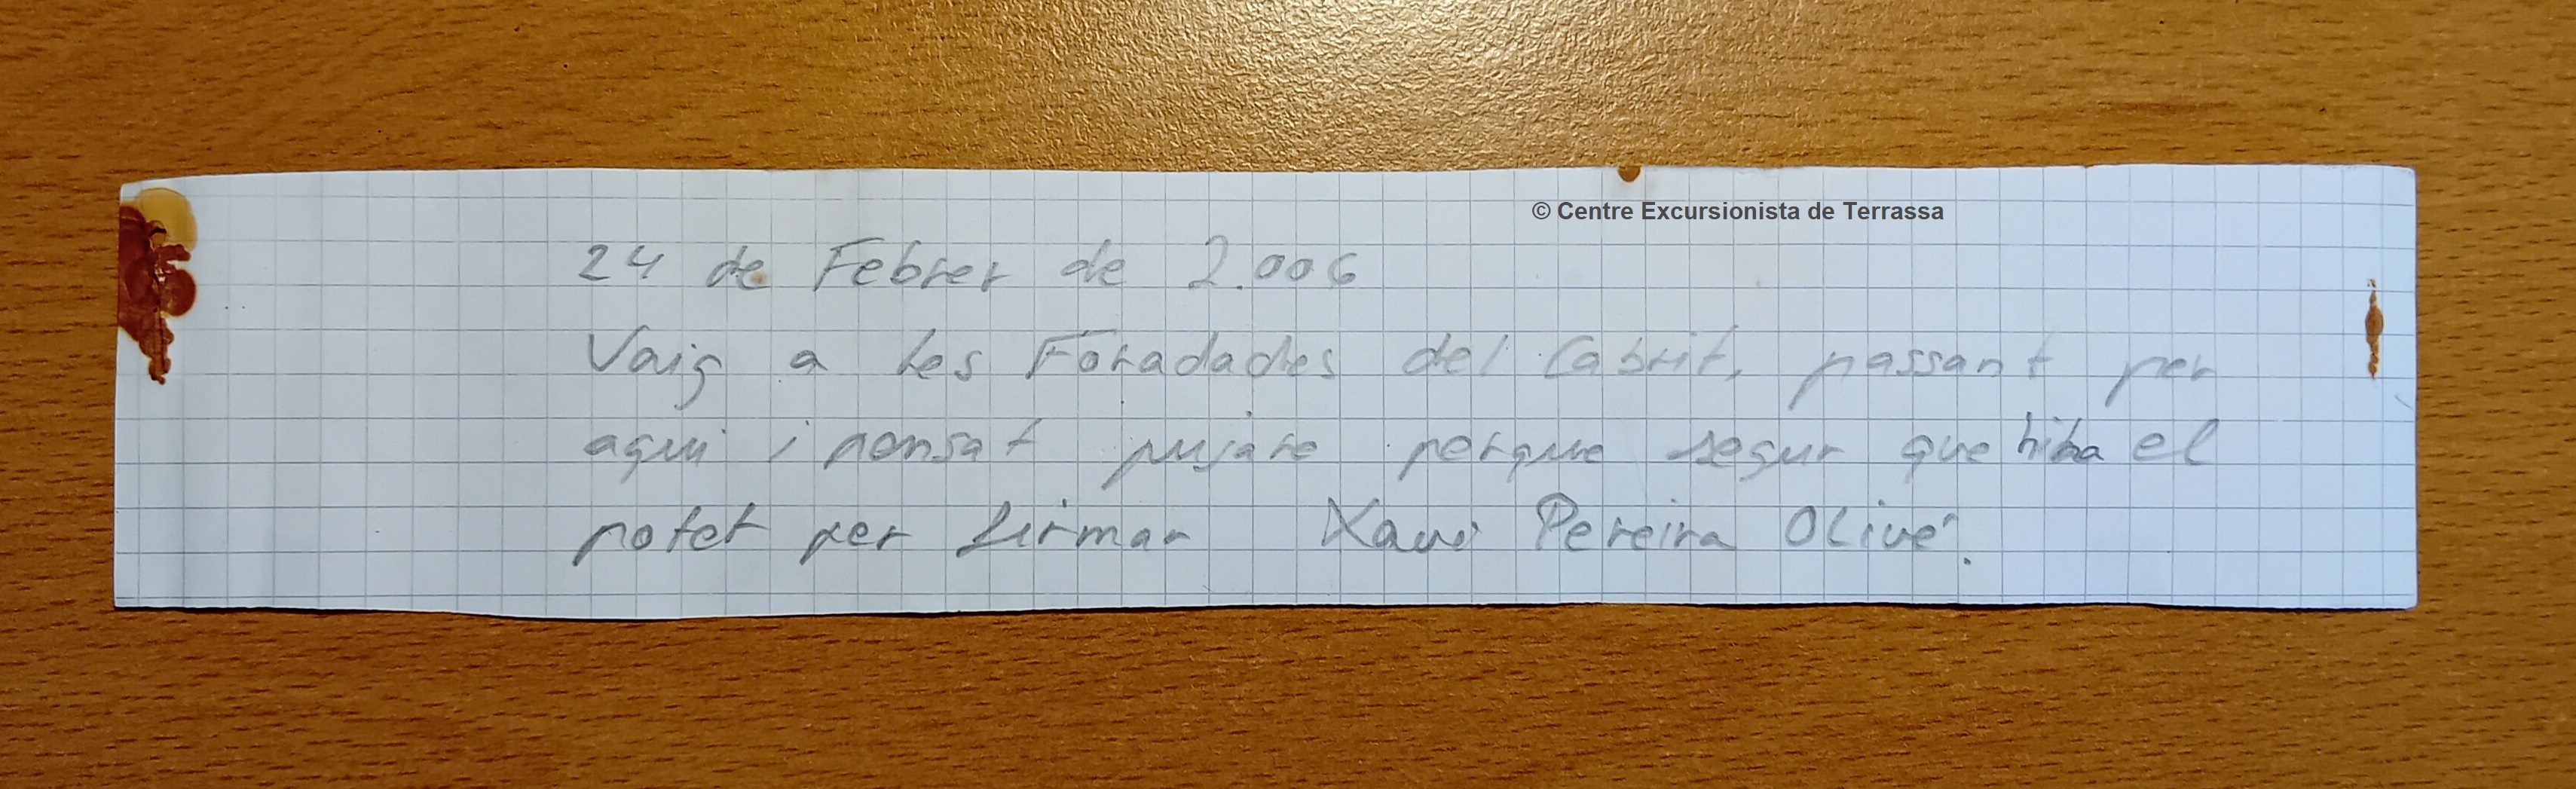 © Centre Excursionista de Terrassa
24 de Febrer de 2.006
Vaig a les Foradades del Cabrit, passant per
aqui i pensat pujare perque segur que hiha el
potet per firmar Xavi Pereira Olivé.